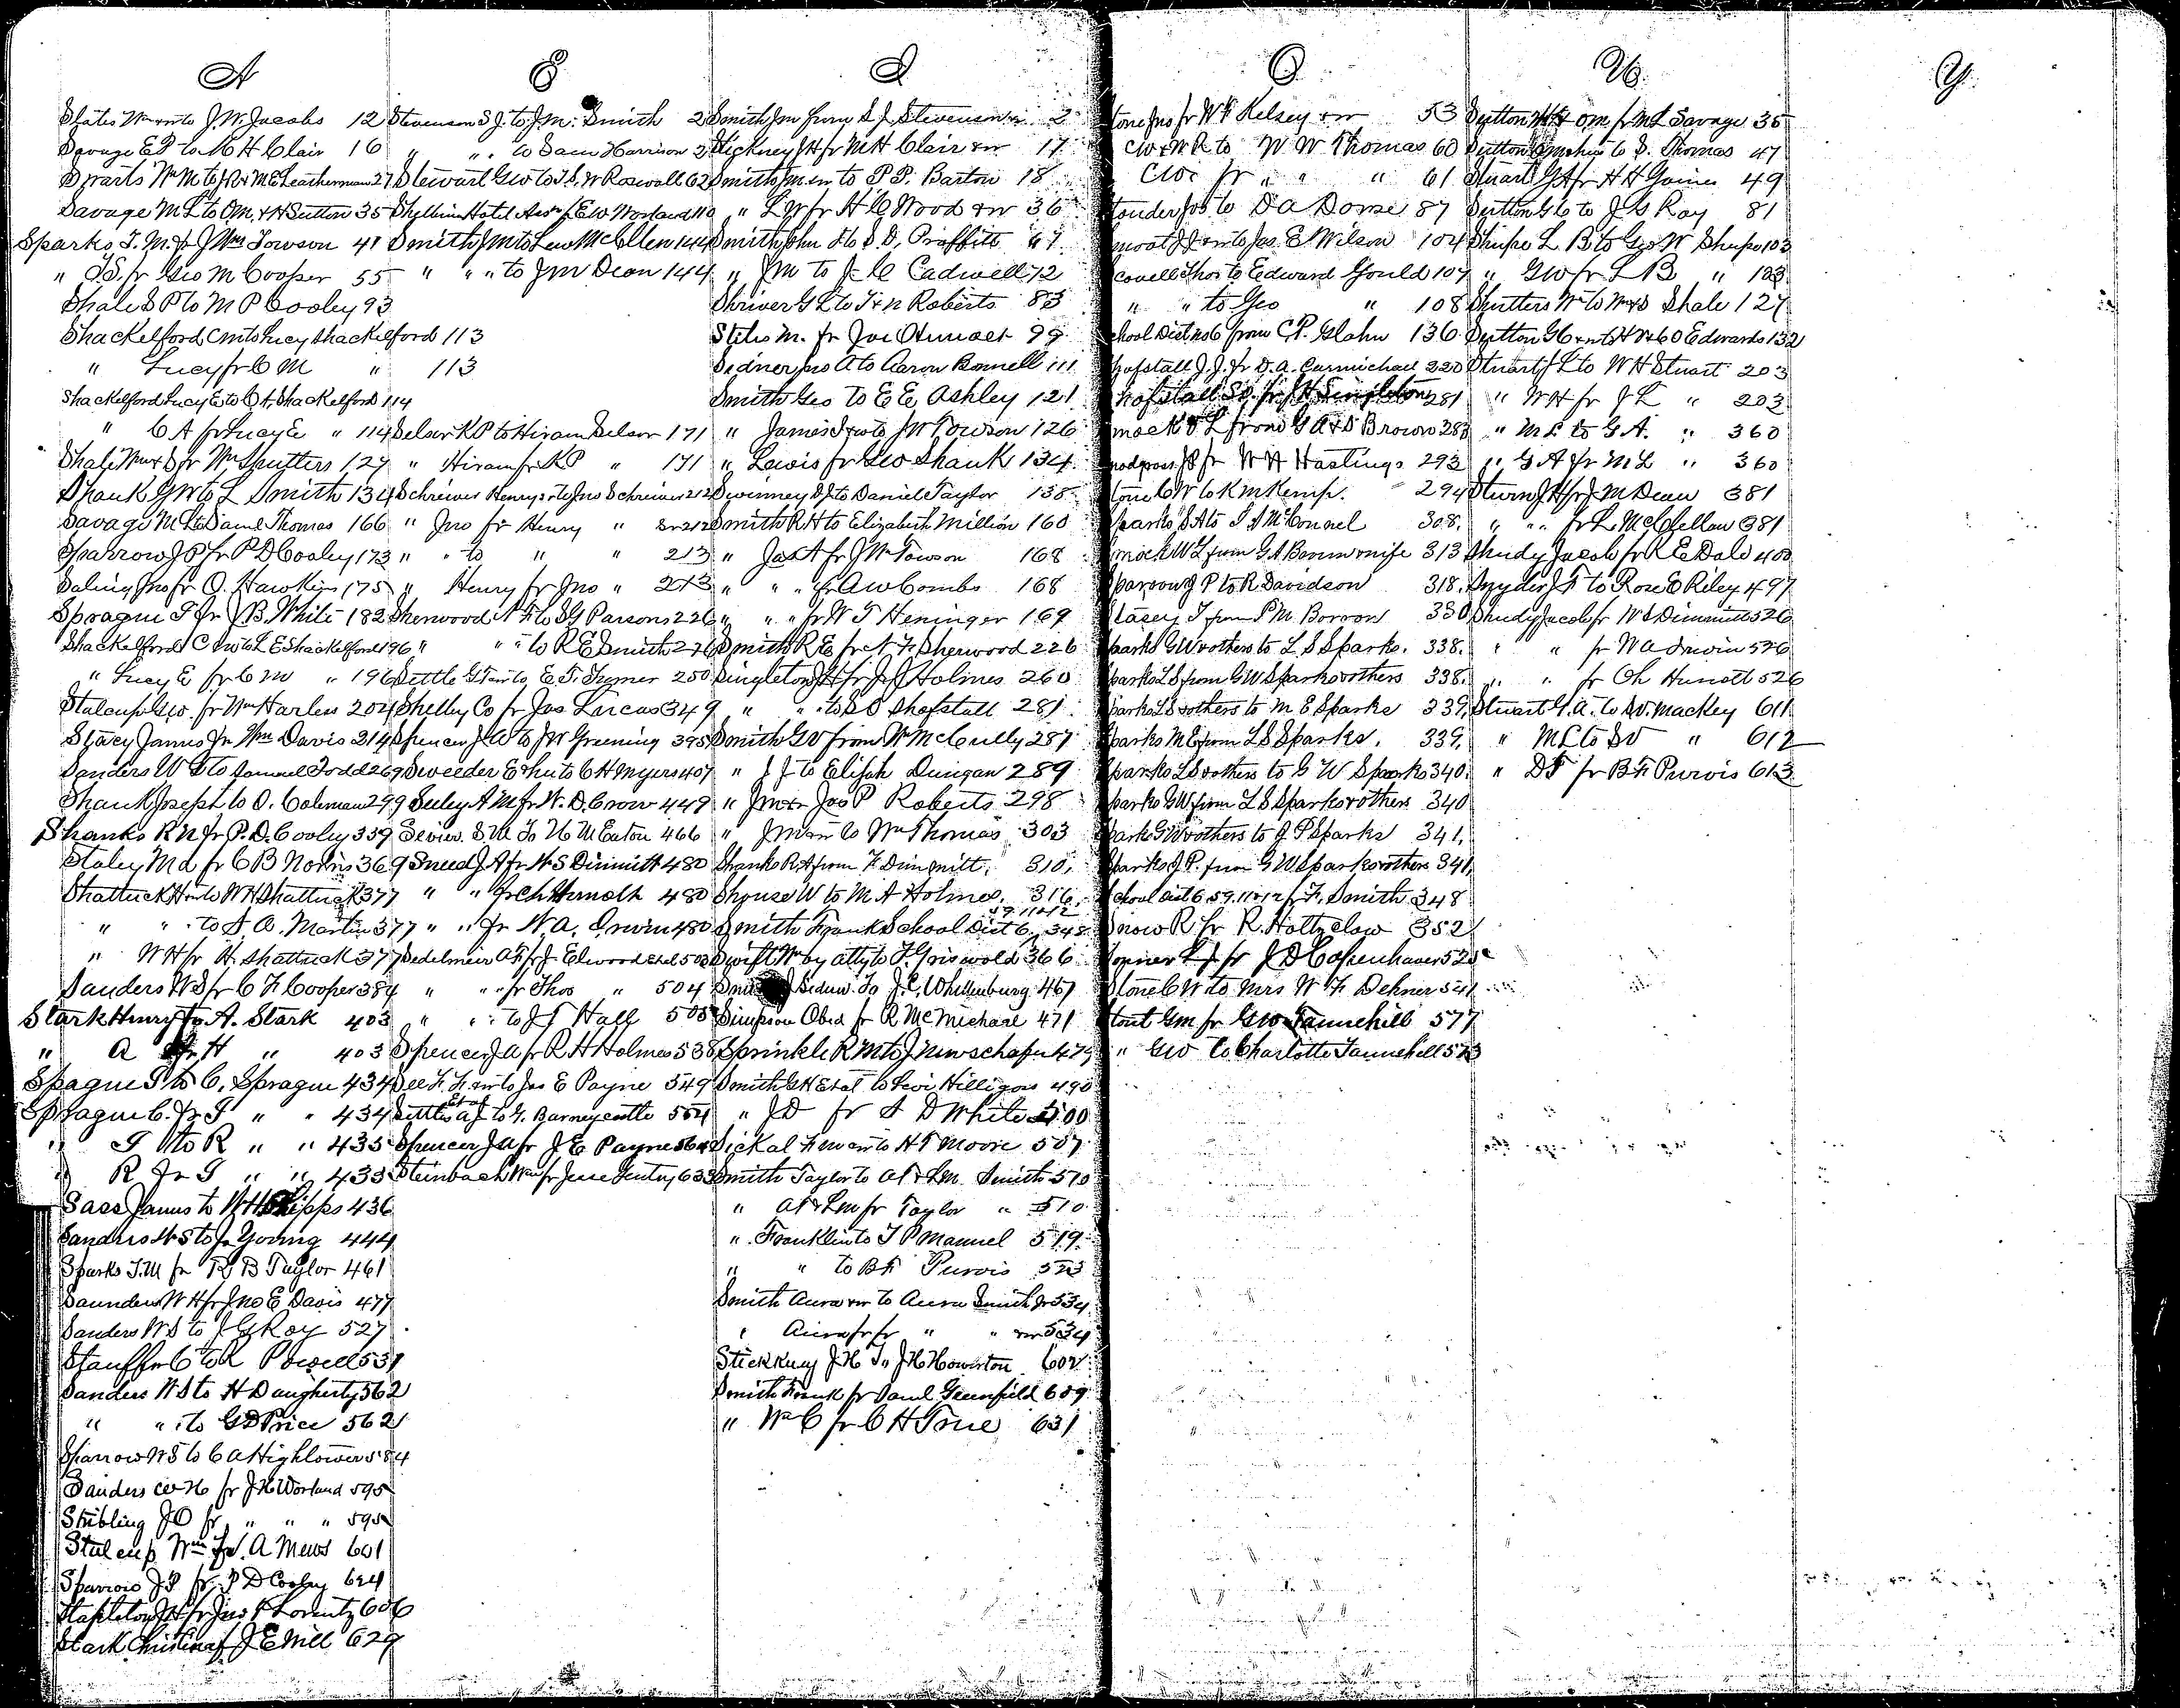 A
States Wm & wife to J. W. Jacobs 12
Savage E P to M H Clair 16
Swarts Wm M to J R & M E Leatherman 27
Savage M L to Om. & H Sutton 35
Sparks T. M. fr J Wm Towson 41
" T S. fr Geo M Cooper 55
Shale S P to M P Cooley 93
Shackelford C M to Lucy Shackelford 113
" Lucy fr C M " 113
Shackelford Lucy E to C A Shackelford 114
" C A fr Lucy E " 114
Shale Wm & S fr Wm Shutters 127
Shank G W to L Smith 134
Savage M L to Saml Thomas 166
Sparrow J P fr P D Cooley 173
Saling Jno fr O. Hawkins 175
Sprague T fr J B. White 182
Shackelford C M to L E Shackelford 196
" Lucy E fr C M " 196
Stalcup Geo. fr Wm Harless 204
Stacey James fr Wm Davis 214
Sanders W S to Samuel Todd 269
Shank Joseph to O. Coleman 299
Shanks R N fr P. D. Cooley 339
Staley M A fr C B Norris 369
Shattuck H to W H Shattuck 377
" " to A. O. Martin 377
" W H fr H. Shattuck 377
Sanders W S fr C F Cooper 384
Stark Henry to A. Stark 403
" A fr H " 403
Sprague T to C. Sprague 434
Sprague C. fr T " " 434
" T to R " " 435
" R fr T " " 435
Sass James to W H Phipps 436
Sanders W S to J. Young 444
Sparks T. M fr R B Taylor 461
Saunders W H fr Jno E Davis 477
Sanders W S to J G Roy 527
Stauffer C to R Powell 531
Sanders W S to H Daugherty 562
" " to G D Price 562
Sparrow W S to C A Hightower 584
Sanders W H fr J H Worland 595
Stribling J O fr " " " 595
Stalcup Wm fr J. A Mews 601
Sparrow J P fr P D Cooley 624
Stapleton J H fr Jno P Lorentz 606
Stark Christina fr J E Hill 629
E
Stevenson S J. to J M. Smith 2
" " to Sam Harrison 3
Stewart Geo to T. S. W Roswall 62
Smith J M to Lew McAllen 144
" " " to J M Dean 144
Selsor K P to Hiram Selsor 171
" Hiram fr K P " 171
Schreiner Henry sr to Jno Schreiner 212
" Jno fr Henry " sr 212
" " to " " 213
" Henry fr Jno " 213
Sherwood N F to S G Parsons 226
" " to R E Smith 226
Settle G T & w to E. T. Turner 250
Shelby Co fr Jas Lucas 349
Spencer J A to J W Greening 395
Sweeder E & hu to C H Myers 407
Seeley A M fr W. D. Crow 449
Sneed J A fr W S Dimmitt 480
" " fr Ch Hunolt 480
" " fr W. A. Irwin 480
Sedelmeir A F fr J Elwood et al 503
" " fr Thos " 504
" " to J J Hall 505
Spencer J A fr R H Holmes 538
See F. F. & w to Jas E Payne 549
Settles A J et al to G. Barneycastle 554
Spencer J A fr J E Payne 564
Steinbach Wm fr Jesse Gentry 633
I
Smith Jm from S J Stevenson 2
Stickney J H fr M H Clair & w 17
Smith J M & w to P P. Barton 18
" L W fr H C Wood & w 36
Smith John H to S. D. Proffitt 67
" Jm to J C Cadwell 72
Shriver G L to T & N Roberts 83
Stiles M. fr Joe Stumaer 99
Sidner Jno A to Aaron Bonnell 111
Smith Geo to E E Ashley 121
" James T & w to J W Towson 126
" Lewis fr Geo Shank 134
Swinney D J to Daniel Taylor 138
Smith R H to Elizabeth Million 160
" Jas A fr J W Towson 168
" " " fr A W Combs 168
" " " fr W T Heninger 169
Smith R E fr N F Sherwood 226
Singleton J H fr J J Holmes 260
" " to S D Shofstall 281
Smith G V from Wm McCully 287
" J J to Elijah Dungan 289
" Jm & w Jos P Roberts 298
" Jm & w to Wm Thomas 303
Shanks R A from F. Dimmitt. 310.
Shouse W to M A Holmes. 316.
Smith Frank School Dist 6, 59. 11 & 12 348
Swift Wm by atty to F. Griswold 366
J. C. Whittenburg 467
Simpson Obed fr R McMichael 471
Sprinkle R M to J New Schafer 479
Smith G H et al to Levi Hilligoss 490
" J D fr S D White 500
Sickal F M & w to H T Moore 507
Smith Taylor to A F & L M Smith 510
" A F & L M fr Taylor " 510
" Franklin to T P Manuel 519
" " to B F Purvis 523
Smith Aura & w to Aura Smith Jr 534
" Aura Jr fr " " & w 534
Stickney J H to J H Howerton 602
Smith Frank fr Saml Greenfield 609
" Wm C fr C H True 631
O
Stone Jno fr W F Kelsey & w 53
C W & W R to W W Thomas 60
C W & fr " " " 61
Souder Jos to D A Dorse 87
Smoot J J & w to Jas. E Wilson 104
Scovell Thos to Edward Gould 107
" " to Geo " 108
School Dist No 6 from C P. Glahn 136
Shofstall J. J. fr D. A. Carmichael 220
Shofstall S D. fr J H Singleton 281
Smock W L from G A & S Brown 283
Snodgrass J P fr W H Hastings 293
Stone C W to K M Kemp. 294
Sparks S A to T A McConnel 308.
Smock W L from G A Brown & wife 313
Sparrow J P to R Davidson 318.
Stacey J from P M. Borron 330
Sparks G W & others to L. S Sparks. 338.
Sparks L S from G W Sparks & others 338.
Sparks L S & others to M E Sparks 339.
Sparks M E from L S Sparks. 339.
Sparks L S & others to G W Sparks 340.
Sparks G W from L S Sparks & others 340
Sparks G W & others to J P Sparks 341.
Sparks J P. from G W Sparks & others 341.
School dist 6, 59. 11 & 12 fr F. Smith 348
Snow R fr R. Holtzclaw 352
J D Copenhaver 520
Stone C W to Mrs W F Dehner 541
Stout G M fr Geo Tannehill 577
" Geo to Charlotte Tannehill 573
U
Sutton H & O M. fr M L Savage 35
to S. Thomas 47
Stuart G A fr H H Gaines 49
Sutton G C to J G Roy 81
Shupe L B to Geo W Shupe 103
" G W fr L B " 103
Shutters Wm to Wm & S Shale 127
Sutton G C & w to H V & G O Edwards 132
Stuart J L to W H Stuart 203
" W H fr J L " 203
" M L to G A. " 360
" G A fr M L " 360
Sturn J H fr J M Dean 381
" " fr L McClellan 381
Study Jacob fr R E Dale 400
Snyder J F to Rose O Riley 497
Study Jacob fr W S Dimmitt 526
" " fr W A Irwin 526
" " fr Ch Hunolt 526
Stuart G. A. to D V. Mackey 611
" M L to D V " 612
" D F fr B F Purvis 613
Y